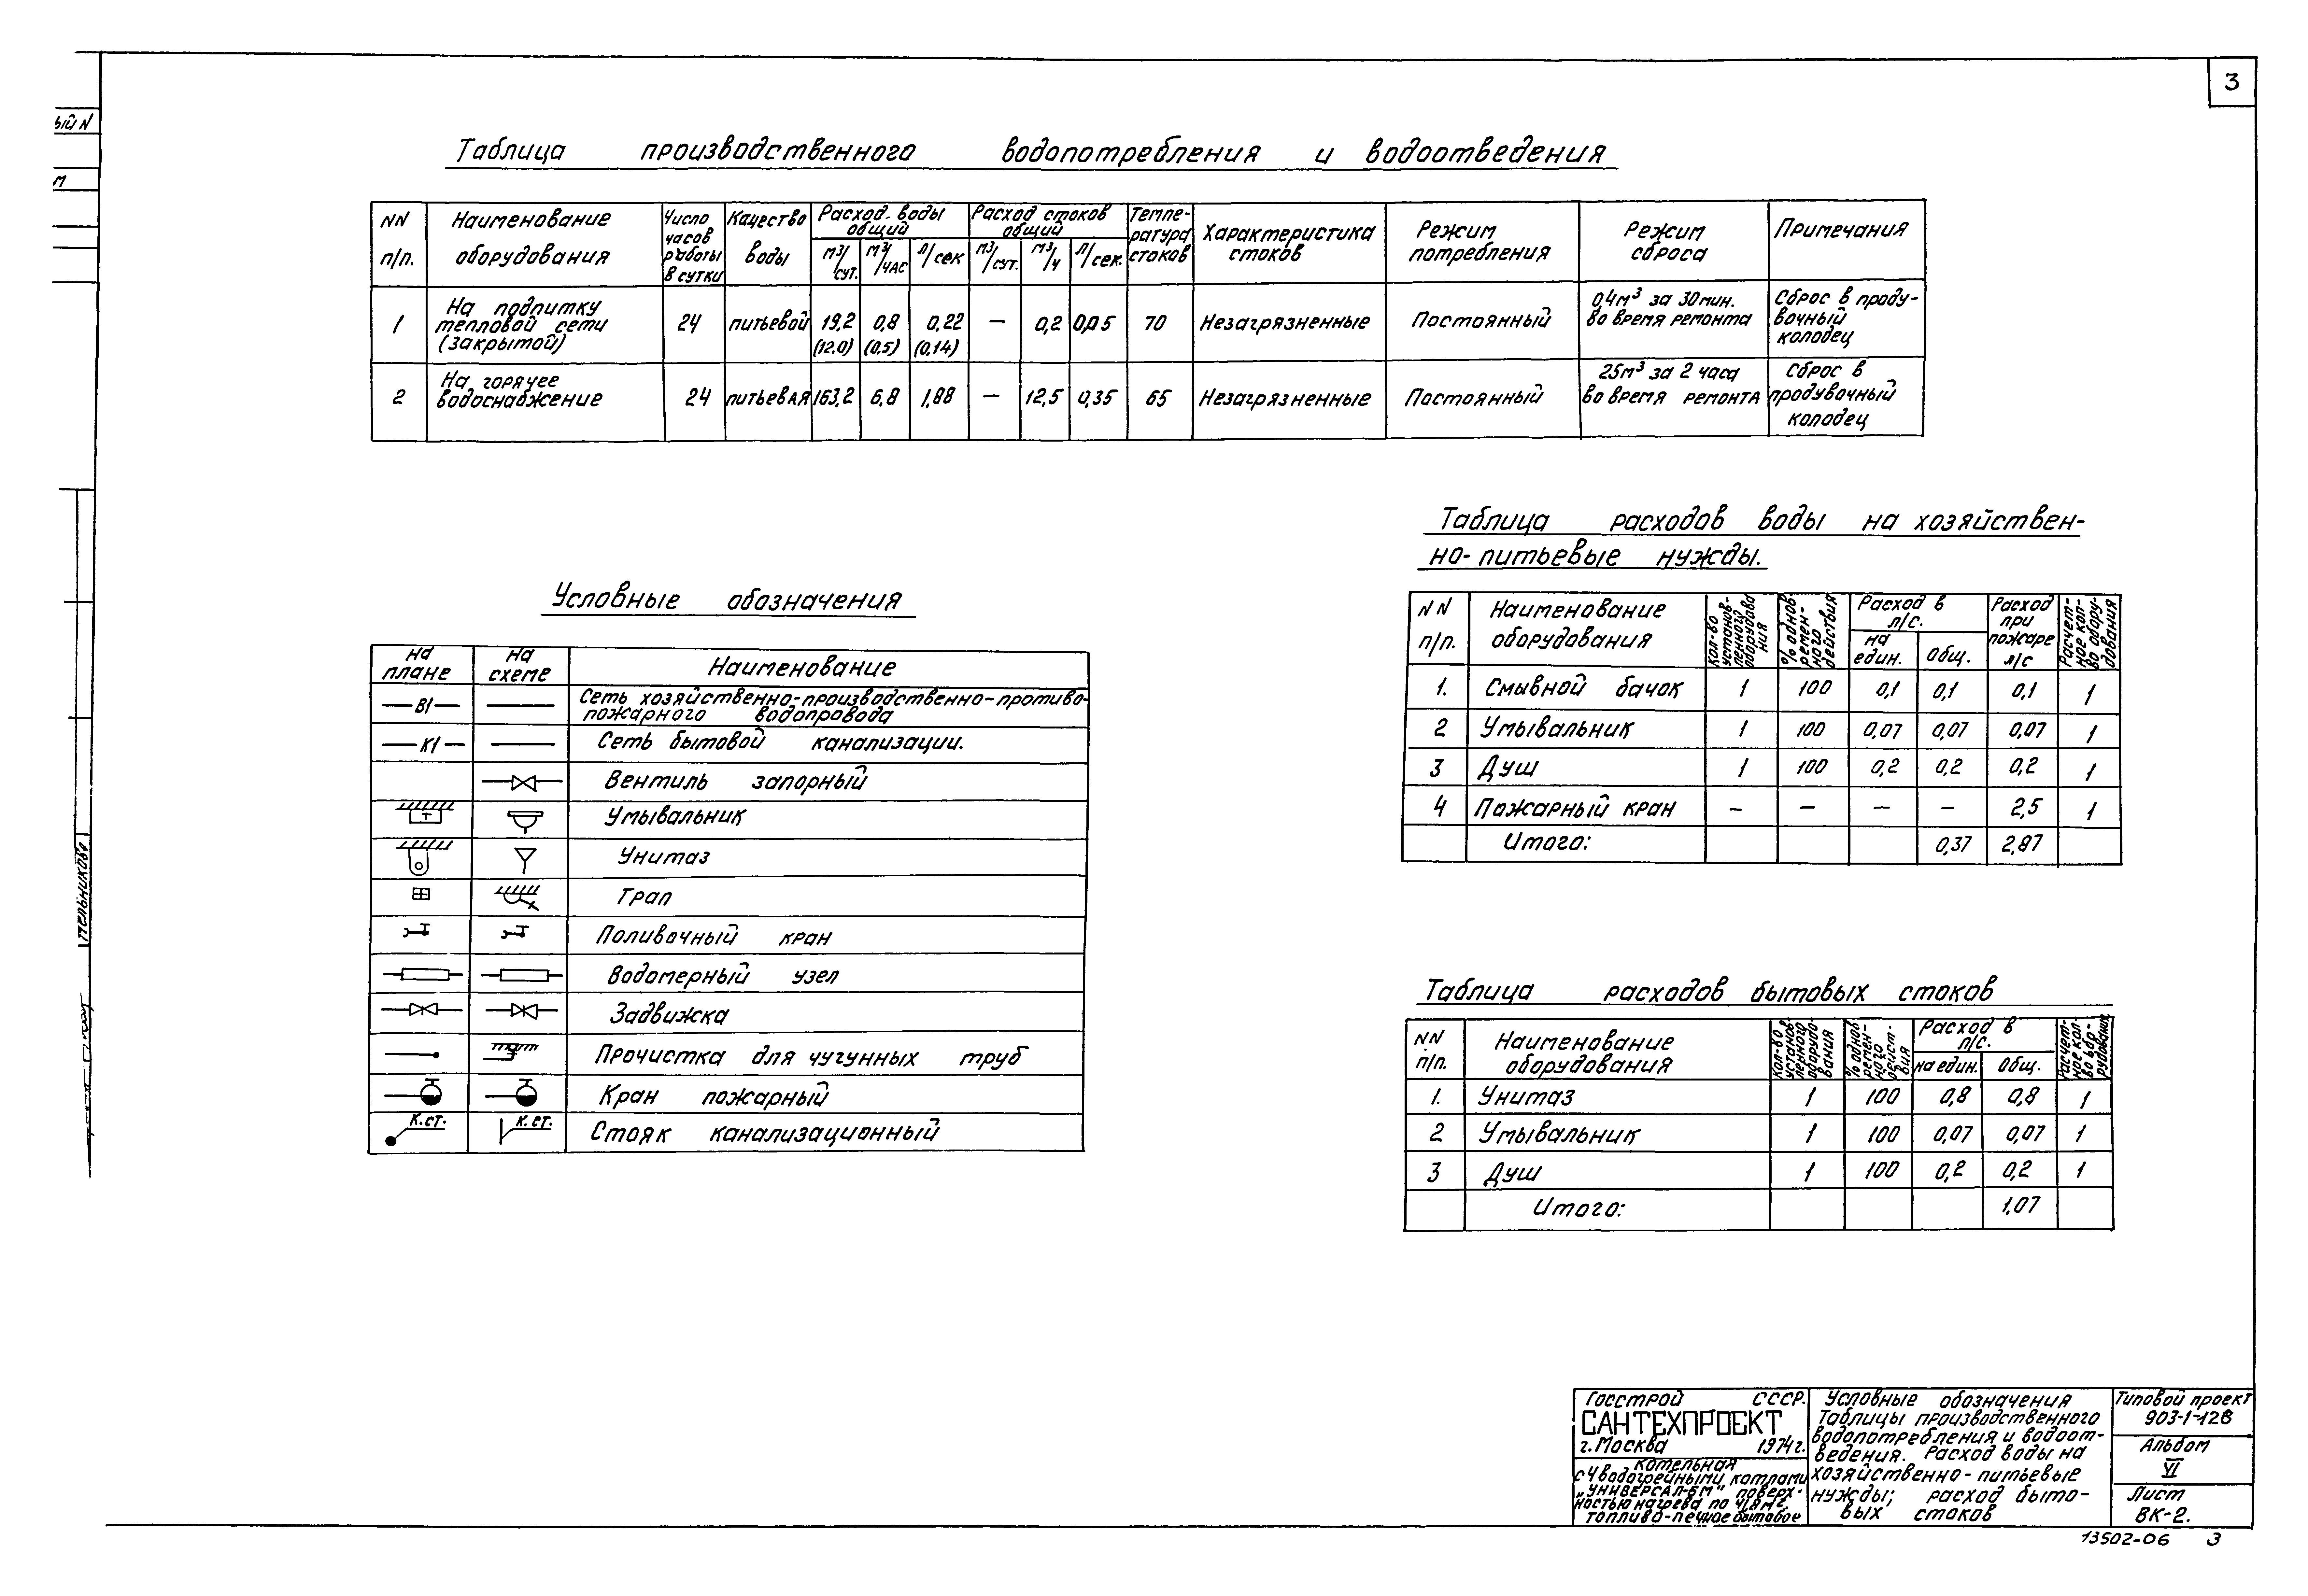 3
ый N
м
Таблица производственного водопотребления и водоотведения
NN п/п. | Наименование оборудования | Число часов работы в сутки | Качество воды | Расход воды общий | Расход стоков общий | Темпе-ратура стоков | Характеристика стоков | Режим потребления | Режим сброса | Примечания
м3/сут. | м3/час | л/сек | м3/сут. | м3/ч | л/сек.
1 | На подпитку тепловой сети (закрытой) | 24 | питьевой | 19,2 (12,0) | 0,8 (0,5) | 0,22 (0,14) | — | 0,2 | 0,05 | 70 | Незагрязненные | Постоянный | 0,4м3 за 30мин. во время ремонта | Сброс в проду-вочный колодец
2 | На горячее водоснабжение | 24 | питьевая | 163,2 | 6,8 | 1,88 | — | 12,5 | 0,35 | 65 | Незагрязненные | Постоянный | 25м3 за 2 часа во время ремонта | Сброс в продувочный колодец
Условные обозначения
На плане | На схеме | Наименование
В1 | Сеть хозяйственно-производственно-противо-
пожарного водопровода
К1 | Сеть бытовой канализации.
Вентиль запорный
Умывальник
Унитаз
Трап
Поливочный кран
Водомерный узел
Задвижка
Прочистка для чугунных труб
Кран пожарный
К.ст. | К.ст. | Стояк канализационный
Таблица расходов воды на хозяйствен-
но-питьевые нужды.
NN п/п. | Наименование оборудования | Кол-во установ-ленного оборудова ния | % однов-ремен-ного действия | Расход в л/с. | Расход при пожаре л/с | Расчет-ное кол-во обору-дования
на един. | общ.
1. | Смывной бачок | 1 | 100 | 0,1 | 0,1 | 0,1 | 1
2 | Умывальник | 1 | 100 | 0,07 | 0,07 | 0,07 | 1
3 | Душ | 1 | 100 | 0,2 | 0,2 | 0,2 | 1
4 | Пожарный кран | — | — | — | — | 2,5 | 1
Итого: | 0,37 | 2,87
Таблица расходов бытовых стоков
NN п/п. | Наименование оборудования | Кол-во установ-ленного оборудо-вания | % однов-ремен-ного дейст-вия | Расход в л/с. | Расчет-ное кол-во обо-рудования
на един. | общ.
1. | Унитаз | 1 | 100 | 0,8 | 0,8 | 1
2 | Умывальник | 1 | 100 | 0,07 | 0,07 | 1
3 | Душ | 1 | 100 | 0,2 | 0,2 | 1
Итого: | 1,07
Мельникова
Госстрой СССР.
САНТЕХПРОЕКТ
г.Москва 1974г.
котельная
с 4 водогрейными котлами
„Универсал-6М" поверх-
ностью нагрева по 41,8м2,
топливо-печное бытовое
Условные обозначения
Таблицы производственного
водопотребления и водоот-
ведения. Расход воды на
хозяйственно-питьевые
нужды; расход быто-
вых стоков
Типовой проект
903-1-128
Альбом
VI
Лист
ВК-2.
13502-06 3